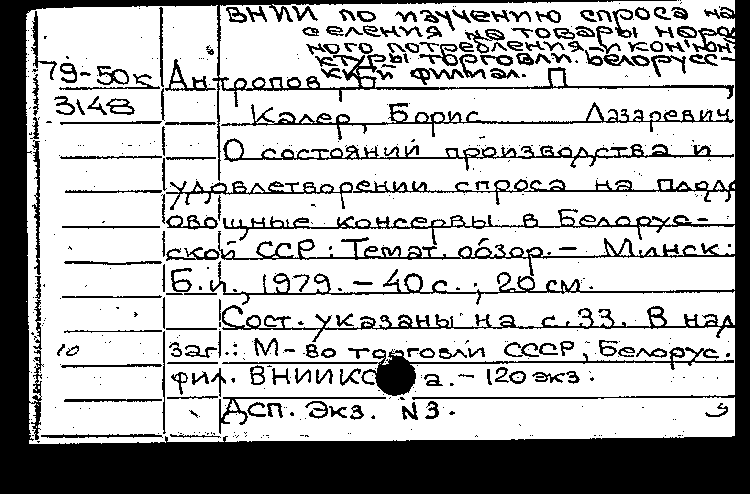 ВНИИ по изучению спроса на
селения на товары народ
ного потребления и конъюн
ктуры торговли. Белорусс-
кий филиал.
79-50к Антропов, П
3148
Калер, Борис Лазаревич
О состоянии производства и
удовлетворении спроса на плодо
овощные консервы в Белорус-
ской ССР : Темат. обзор. - Минск :
Б.и., 1979. - 40 с. ; 20 см.
Сост. указаны на с. 33. В над
10 заг.: М-во торговли СССР, Белорус.
фил. ВНИИКС а. - 120 экз.
Дсп. Экз. N3.